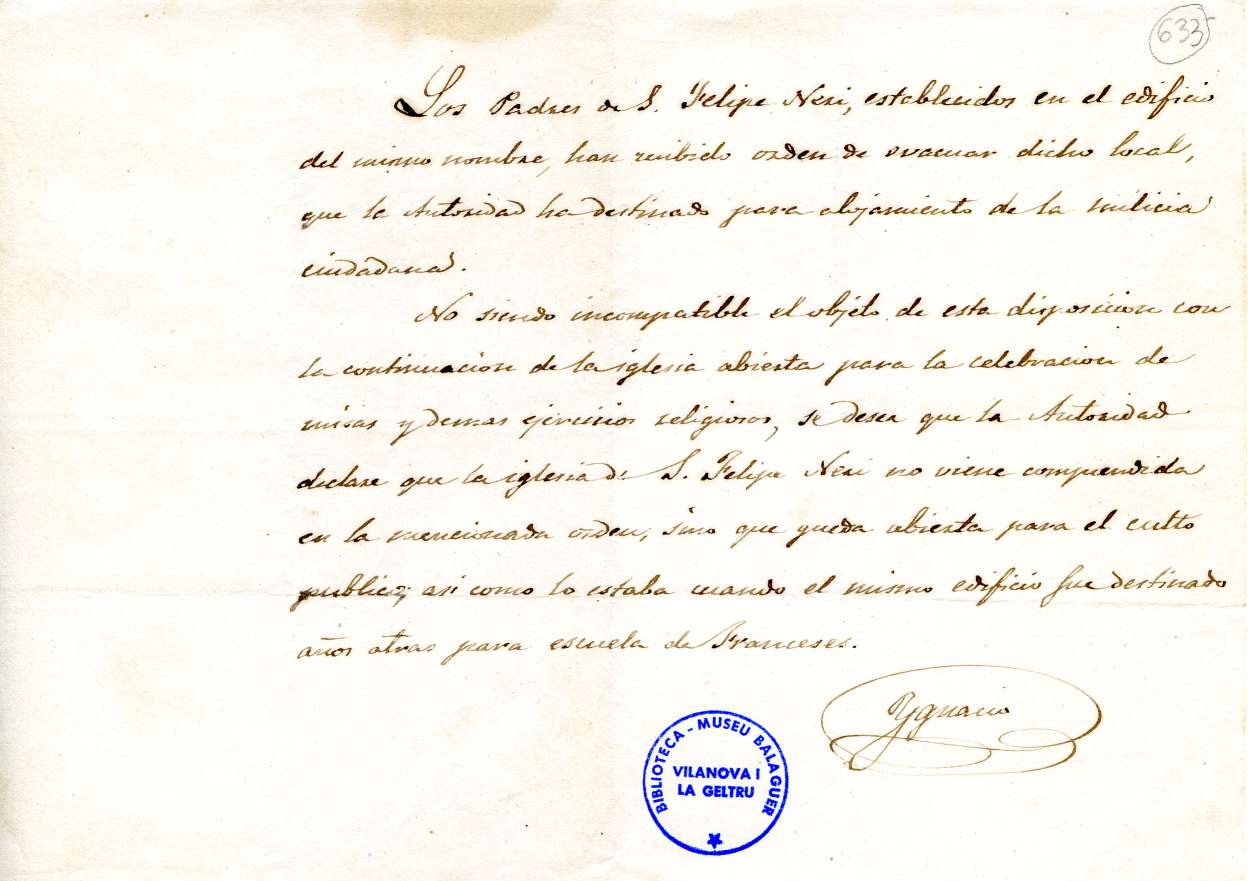 633
Los Padres de S. Felipe Neri, establecidos en el edificio
del mismo nombre, han recibido orden de evacuar dicho local,
que la Autoridad ha destinado para alojamiento de la milicia
ciudadana.
No siendo incompatible el objeto de esta disposicion con
la continuacion de la iglesia abierta para la celebracion de
misas y demas ejercicios religiosos, se desea que la Autoridad
declare que la iglesia de S. Felipe Neri no viene comprendida
en la mencionada orden, sino que queda abierta para el culto
publico; asi como lo estaba cuando el mismo edificio fue destinado
años atras para escuela de Franceses.
Ygnacio
BIBLIOTECA - MUSEU BALAGUER
VILANOVA I
LA GELTRU